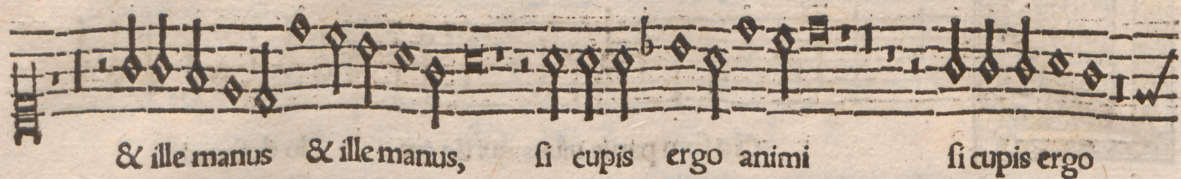 & ille manus & ille manus, ſi cupis ergo animi ſi cupis ergo